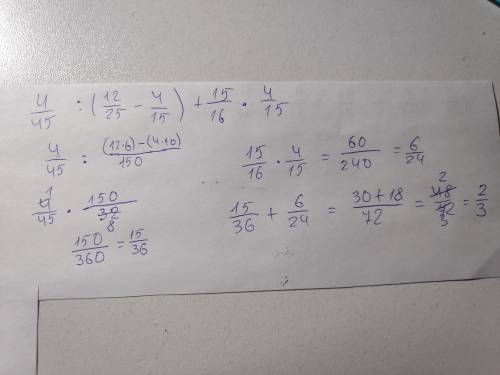 4/45 : (12/25 - 4/15) + 15/16 · 4/15
4/45 : (12·6)-(4·10)/150
15/16 · 4/15 = 60/240 = 6/24
4/45 · 150/32
1 8
15/36 + 6/24 = 30+18/72 = 48/72 = 2/3
2 3
150/360 = 15/36